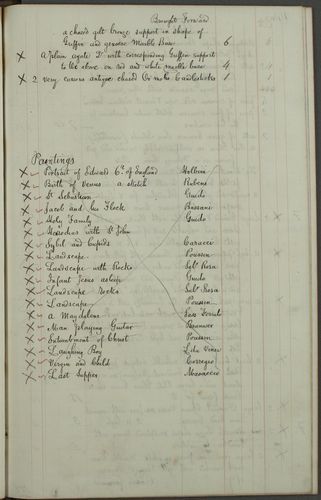 Brought Forward
a chased gilt bronze support in shape of
Griffin and genuine Marble Base 6 6
X A plain agate Do with corresponding Griffin support
to the above on red and white marble base 4 4
X 2 very curious antique chased Or molu Candlesticks 1 1
Paintings
X Portrait of Edward 6th of England Holbein
X Birth of Venus a sketch Rubens
X St Sebastian Guido
X Jacob and his Flock Bassani
X Holy Family Guido
X Herodias with St John
X Sybil and Cupids Caracci
X Landscape Poussin
X Landscape with Rocks Salv Rosa
X Infant Jesus asleep Guido
X Landscape Rocks Salv Rosa
X Landscape Poussin
X a Magdalene
X Man Playing Guitar Brauwer
X Entombment of Christ Poussin
X Laughing Boy L da Vinci
X Virgin and Child Corregio
X Last Supper Masaccio